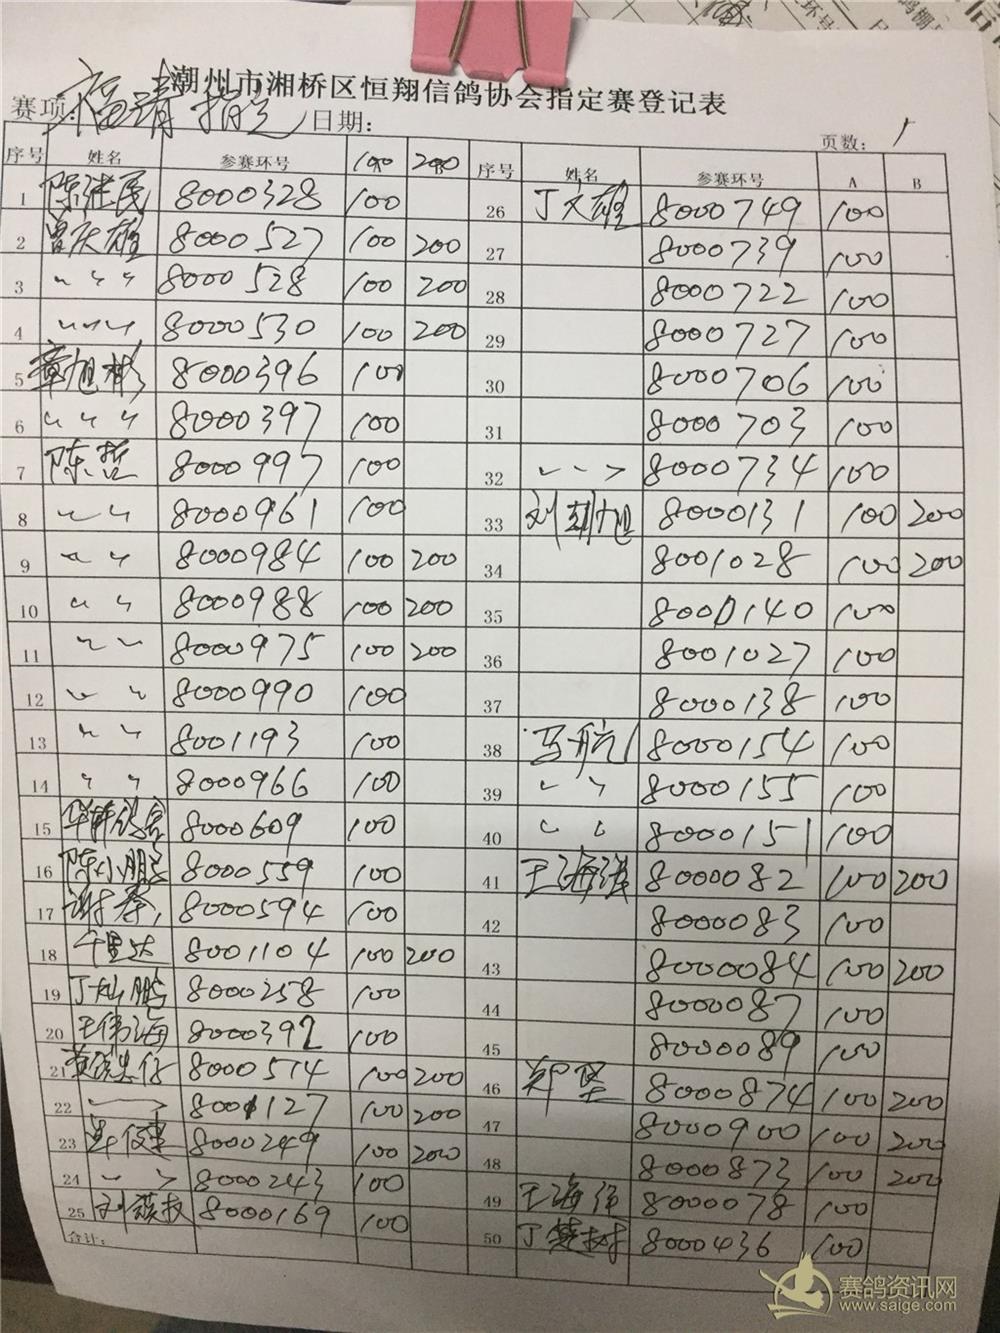 潮州市湘桥区恒翔信鸽协会指定赛登记表
赛项: 福清指定 日期:
页数: 1
序号 姓名 参赛环号 100 200 序号 姓名 参赛环号 A B
1 陈继民 8000328 100 26 丁文雄 8000749 100
2 曾庆雄 8000527 100 200 27 8000739 100
3 〃 〃 〃 8000528 100 200 28 8000722 100
4 〃 〃 〃 8000530 100 200 29 8000727 100
5 章旭彬 8000396 100 30 8000706 100
6 〃 〃 〃 8000397 100 31 8000703 100
7 陈哲 8000997 100 32 〃 〃 〃 8000734 100
8 〃 〃 8000961 100 33 刘朝旭 8000131 100 200
9 〃 〃 8000984 100 200 34 8001028 100 200
10 〃 〃 8000988 100 200 35 8000140 100
11 〃 〃 8000975 100 200 36 8001027 100
12 〃 〃 8000990 100 37 8000138 100
13 〃 〃 8001193 100 38 马航 8000154 100
14 〃 〃 8000966 100 39 〃 〃 8000155 100
15 8000609 100 40 〃 〃 8000151 100
16 陈小鹏 8000559 100 41 王海 8000082 100 200
17 谢 8000594 100 42 8000083 100
18 千里达 8001104 100 200 43 8000084 100 200
19 丁灿鹏 8000258 100 44 8000087 100
20 王伟海 8000392 100 45 8000089 100
21 黄 8000514 100 200 46 郑坚 8000874 100 200
22 8001127 100 200 47 8000900 100 200
23 健 8000249 100 200 48 8000873 100 200
24 〃 〃 8000243 100 49 王海 8000078 100
25 刘 8000169 100 50 丁 树 8000436 100
合计:
赛鸽资讯网
www.saige.com